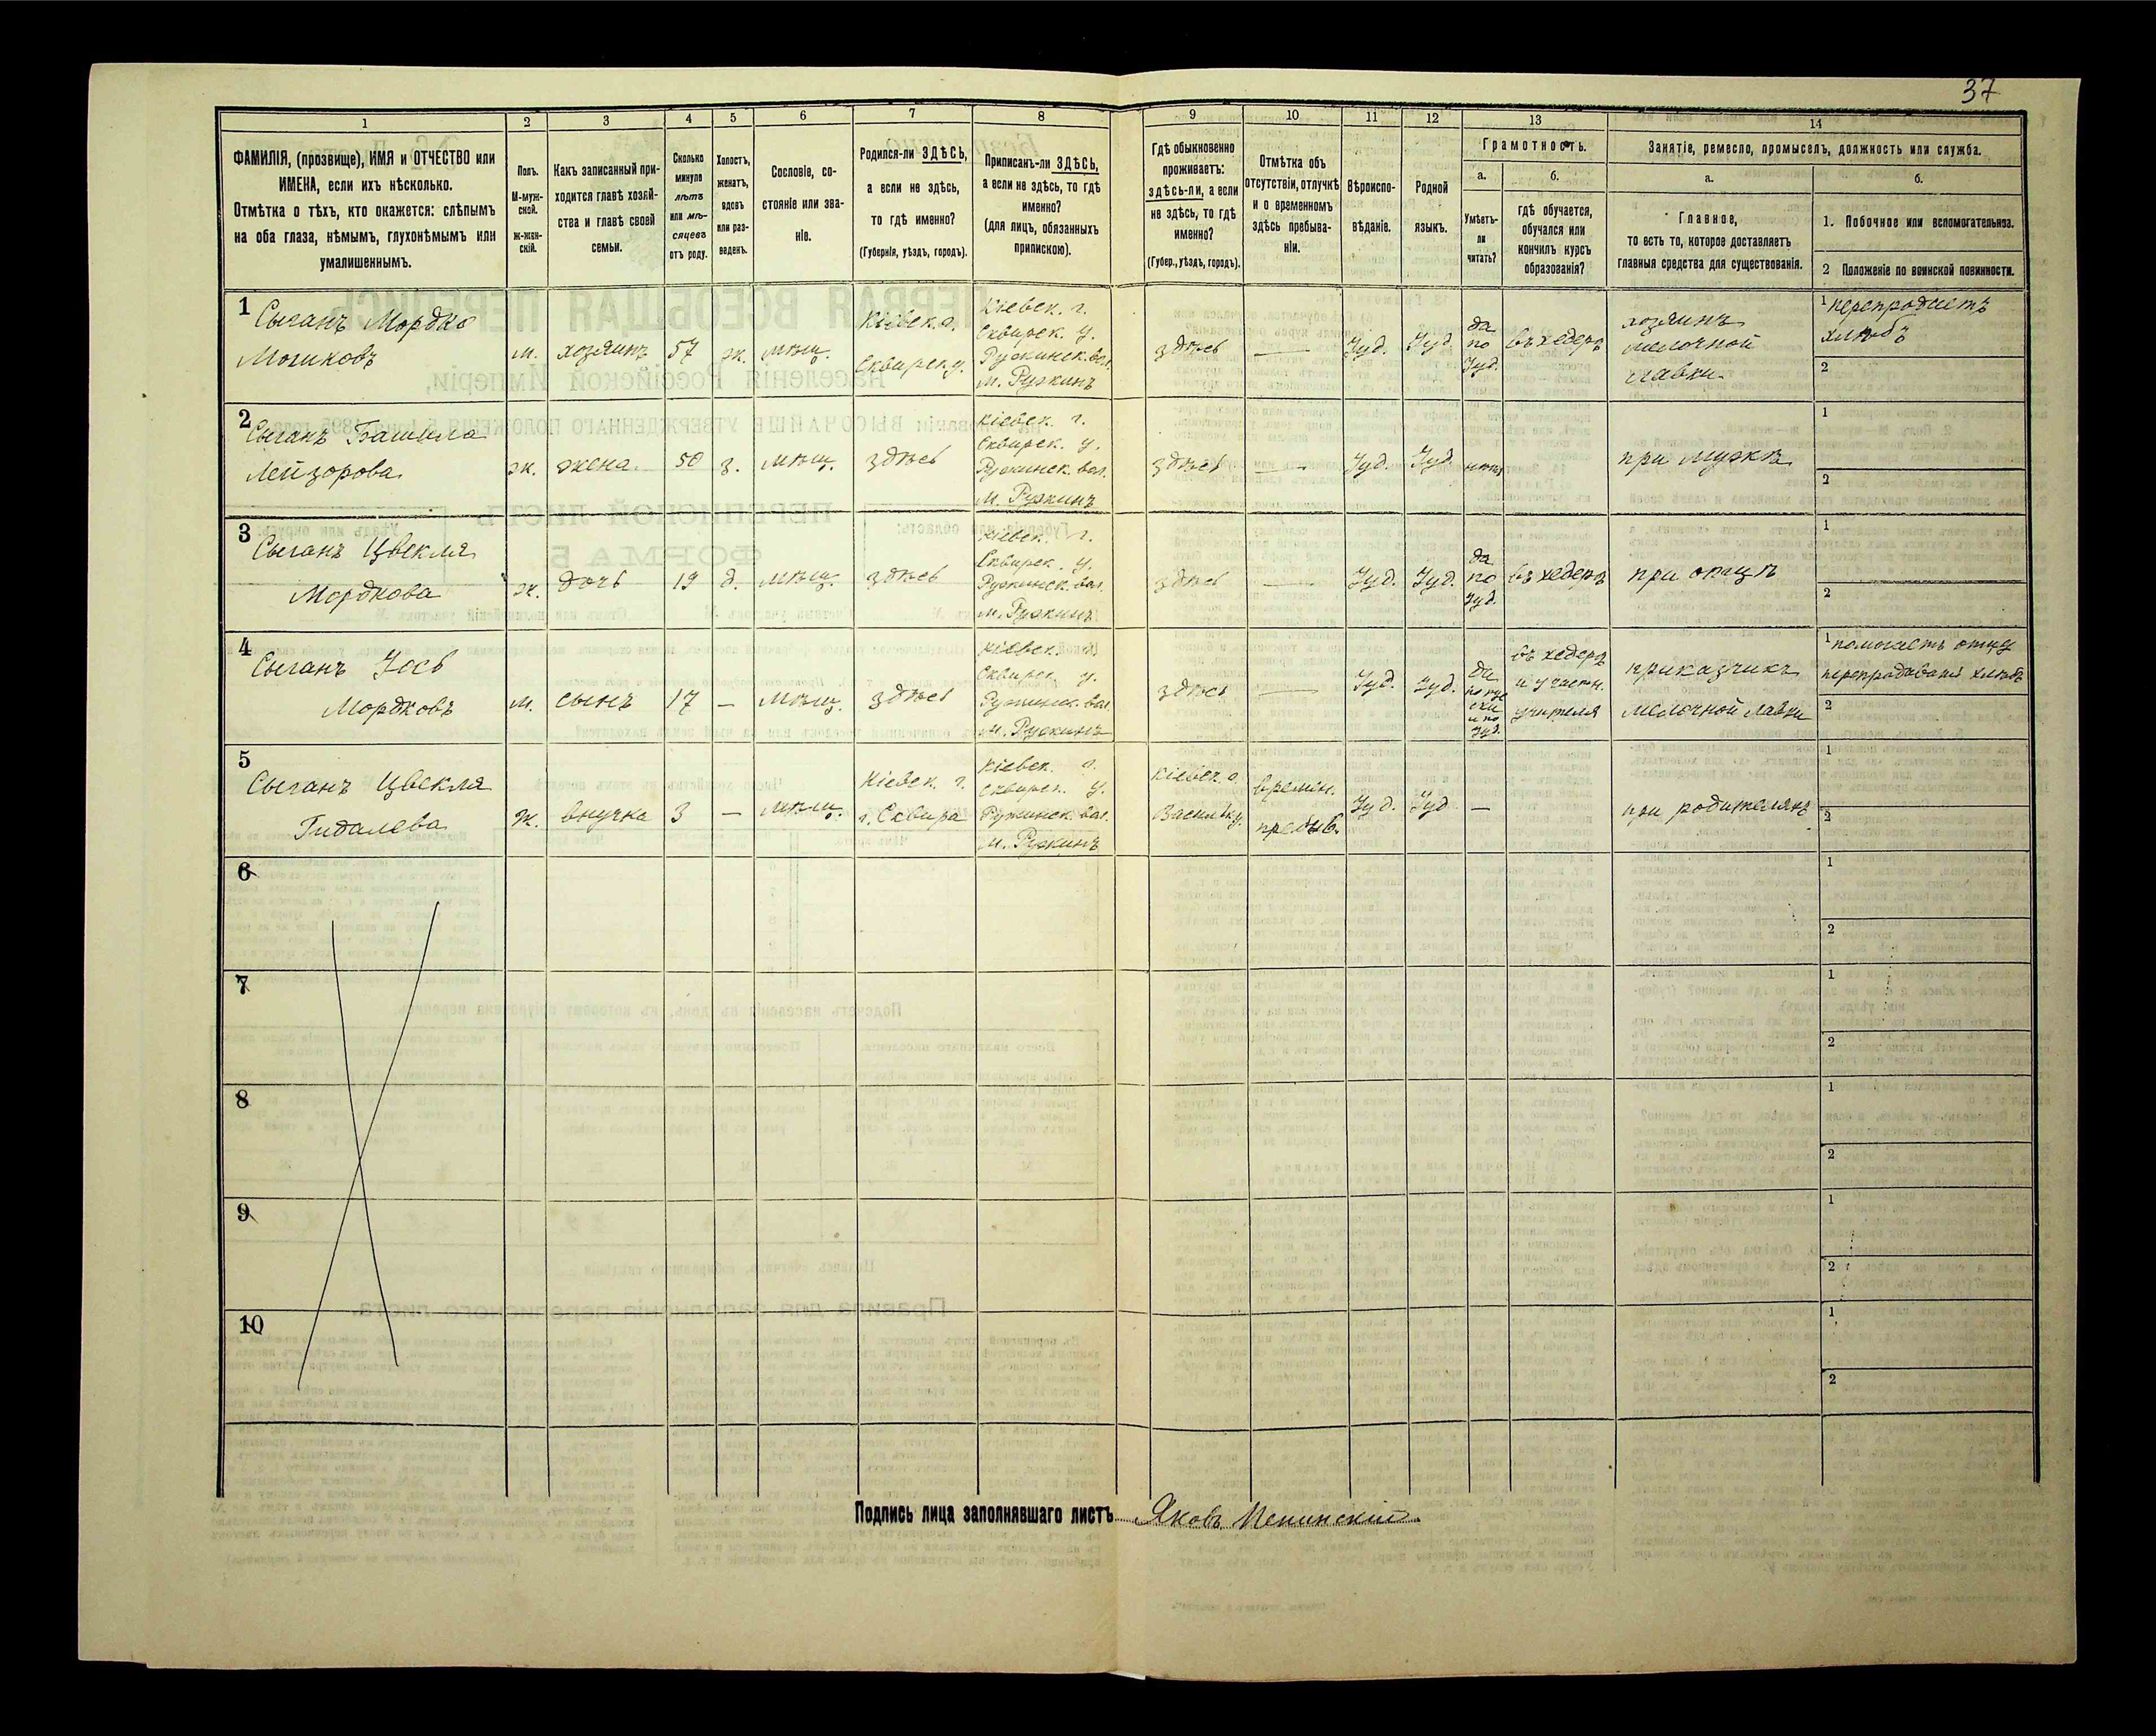 37
1 2 3 4 5 6 7 8 9 10 11 12 13 14
ФАМИЛІЯ, (прозвище), ИМЯ и ОТЧЕСТВО или
ИМЕНА, если ихъ нѣсколько.
Отмѣтка о тѣхъ, кто окажется: слѣпымъ
на оба глаза, нѣмымъ, глухонѣмымъ или
умалишеннымъ.
Полъ.
М-муж-
ской.
ж-жен-
скій.
Какъ записанный при-
ходится главѣ хозяй-
ства и главѣ своей
семьи.
Сколько
минуло
лѣтъ
или мѣ-
сяцевъ
отъ роду.
Холостъ,
женатъ,
вдовъ
или раз-
веденъ.
Сословіе, со-
стояніе или зва-
ніе.
Родился-ли ЗДѢСЬ,
а если не здѣсь,
то гдѣ именно?
(Губернія, уѣздъ, городъ).
Приписанъ-ли ЗДѢСЬ,
а если не здѣсь, то гдѣ
именно?
(для лицъ, обязанныхъ
припискою).
Гдѣ обыкновенно
проживаетъ:
здѣсь-ли, а если
не здѣсь, то гдѣ
именно?
(Губер., уѣздъ, городъ).
Отмѣтка объ
отсутствіи, отлучкѣ
и о временномъ
здѣсь пребыва-
ніи.
Вѣроиспо-
вѣданіе.
Родной
языкъ.
Грамотность.
а.
Умѣетъ-
ли
читать?
б.
гдѣ обучается,
обучался или
кончилъ курсъ
образованія?
Занятіе, ремесло, промыселъ, должность или служба.
а.
Главное,
то есть то, которое доставляетъ
главныя средства для существованія.
б.
1. Побочное или вспомогательное.
2 Положеніе по воинской повинности.
1
Сыганъ Мордко
Мошковъ
м.
хозяинъ
57
ж.
мѣщ.
Кіевск. г.
Сквирск. у.
Кіевск. г.
Сквирск. у.
Ружинск. вол.
м. Ружинъ
здѣсь
—
Іуд.
Іуд.
да
по
Іуд.
въ хедерѣ
хозяинъ
мелочной
лавки
1 перепродаетъ
хлѣбъ
2
2
Сыганъ
Лейзорова
ж.
жена
50
з.
мѣщ.
здѣсь
Кіевск. г.
Сквирск. у.
Ружинск. вол.
м. Ружинъ
здѣсь
—
Іуд.
Іуд.
нѣтъ
при мужѣ
1
2
3
Сыганъ Цвекля
Мордкова
ж.
дочь
19
д.
мѣщ.
здѣсь
Кіевск. г.
Сквирск. у.
Ружинск. вол.
м. Ружинъ
здѣсь
—
Іуд.
Іуд.
да
по
Іуд.
въ хедерѣ
при отцѣ
1
2
4
Сыганъ Іось
Мордковъ
м.
сынъ
17
—
мѣщ.
здѣсь
Кіевск.
Сквирск. у.
Ружинск. вол.
м. Ружинъ
здѣсь
—
Іуд.
Іуд.
да
по рус
ски
и по
Іуд.
въ хедерѣ
и у частн.
учителя
приказчикъ
мелочной лавки
1 помогаетъ отцу
перепродаваній хлѣбъ
2
5
Сыганъ Цвекля
Гидалева
ж.
внучка
3
—
мѣщ.
Кіевск. г.
г. Сквира
Кіевск. г.
Сквирск. у.
Ружинск. вол.
м. Ружинъ
Кіевск. г.
Васильк. у.
времен.
пребыв.
Іуд.
Іуд
—
при родителяхъ
1
2
6
1
2
7
1
2
8
1
2
9
1
2
10
1
2
Подпись лица заполнявшаго листъ Яковъ